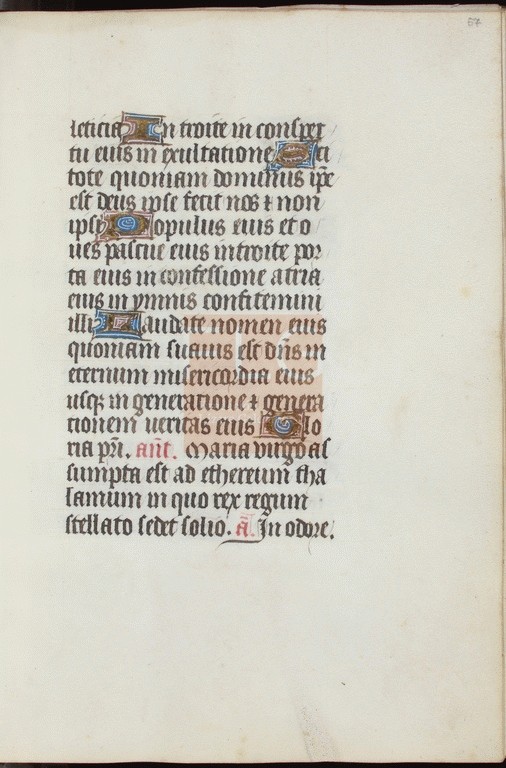 57
leticia In troite in conspec
tu eius in exultatione Sci
tote quoniam dominus ip̄e
est deus ipse fecit nos ⁊ non
ipsi Populus eius et o
ues pascue eius introite por
ta eius in confessione atria
eius in ymnis confitemini
illi Laudate nomen eius
quoniam suauis est dn̄s in
eternum misericordia eius
usqꝫ in generatione ⁊ genera
tionem veritas eius Glo
ria pr̄i. an̄t. Maria virgo as
sumpta est ad ethereum tha
lamum in quo rex regum
stellato sedet solio. ā. In odore.